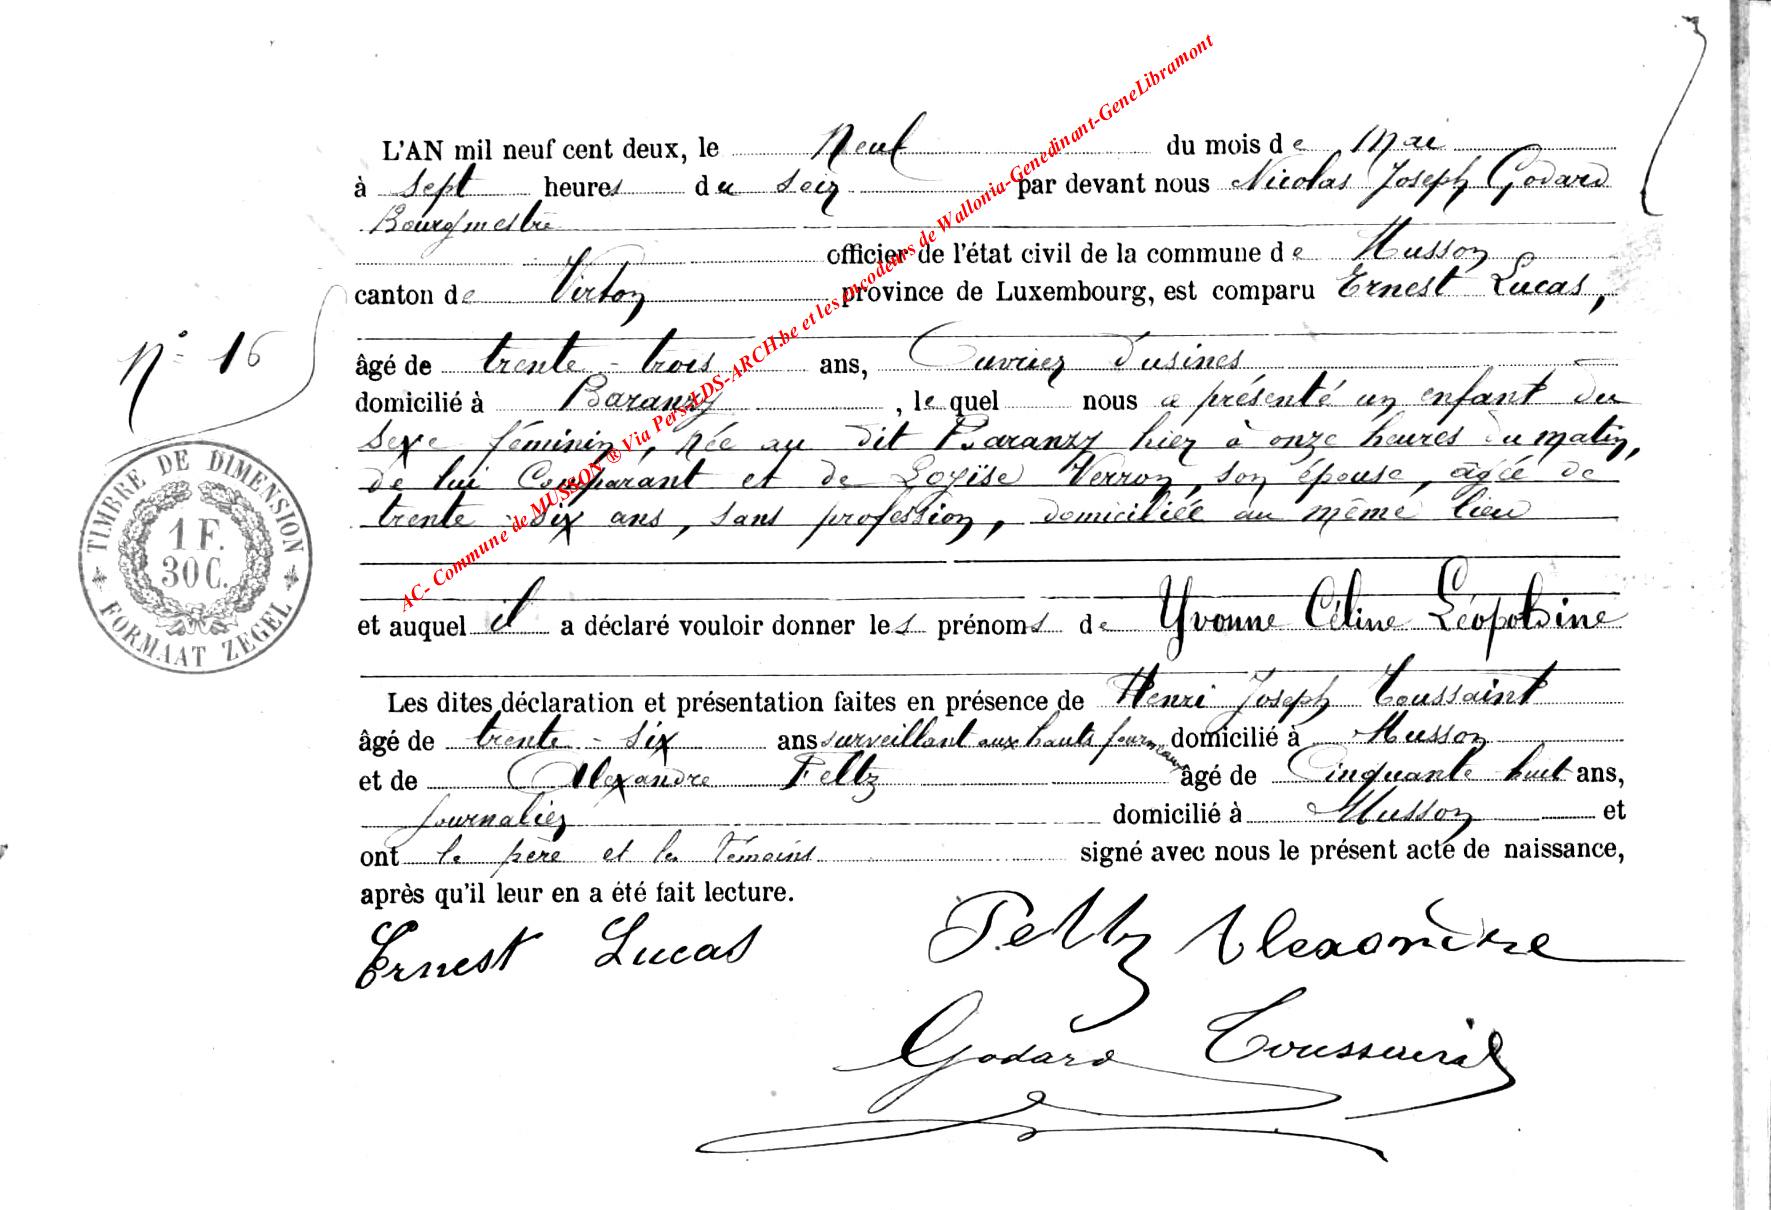 L'AN mil neuf cent deux, le neuf du mois de Mai
à sept heures du soir par devant nous Nicolas Joseph Godard
Bourgmestre
officier de l'état civil de la commune de Musson
canton de Virton province de Luxembourg, est comparu Ernest Lucas,
N° 16
âgé de trente-trois ans, Ouvrier d'usines
domicilié à Baranzy, lequel nous a présenté un enfant du
sexe féminin, née au dit Baranzy hier à onze heures du matin,
de lui Comparant et de Loyïse Verron, son épouse, âgée de
trente-six ans, sans profession, domiciliée au même lieu
et auquel il a déclaré vouloir donner les prénoms de Yvonne Céline Léopoldine
Les dites déclaration et présentation faites en présence de Henri Joseph Toussaint
âgé de trente-six ans surveillant aux hauts fourneaux domicilié à Musson
et de Alexandre Feltz âgé de Cinquante huit ans,
journalier domicilié à Musson et
ont le père et les témoins signé avec nous le présent acte de naissance,
après qu'il leur en a été fait lecture.
Ernest Lucas Feltz Alexandre
Godard Toussaint
TIMBRE DE DIMENSION
1 F.
30 C.
FORMAAT ZEGEL
AC- Commune de MUSSON ® Via Pers-LDS-ARCH.be et les encodeurs de Wallonia-Genedinant-GeneLibramont